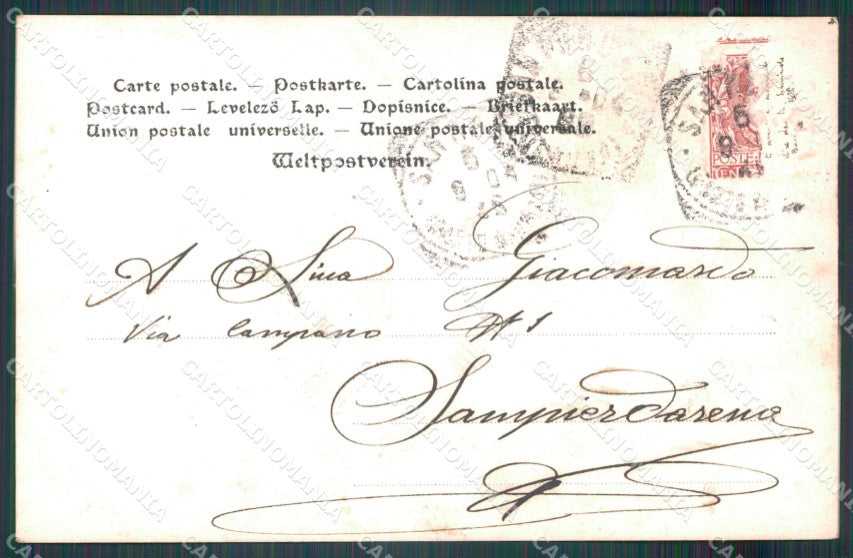 Carte postale. — Postkarte. — Cartolina postale.
Postcard. — Levelező Lap. — Dopisnice. — Briefkaart.
Union postale universelle. — Unione postale universale.
Weltpostverein.
POSTE
A Lina Giacomardo
Via Campano N 1
Sampierdarena
CARTOLINOMANIA